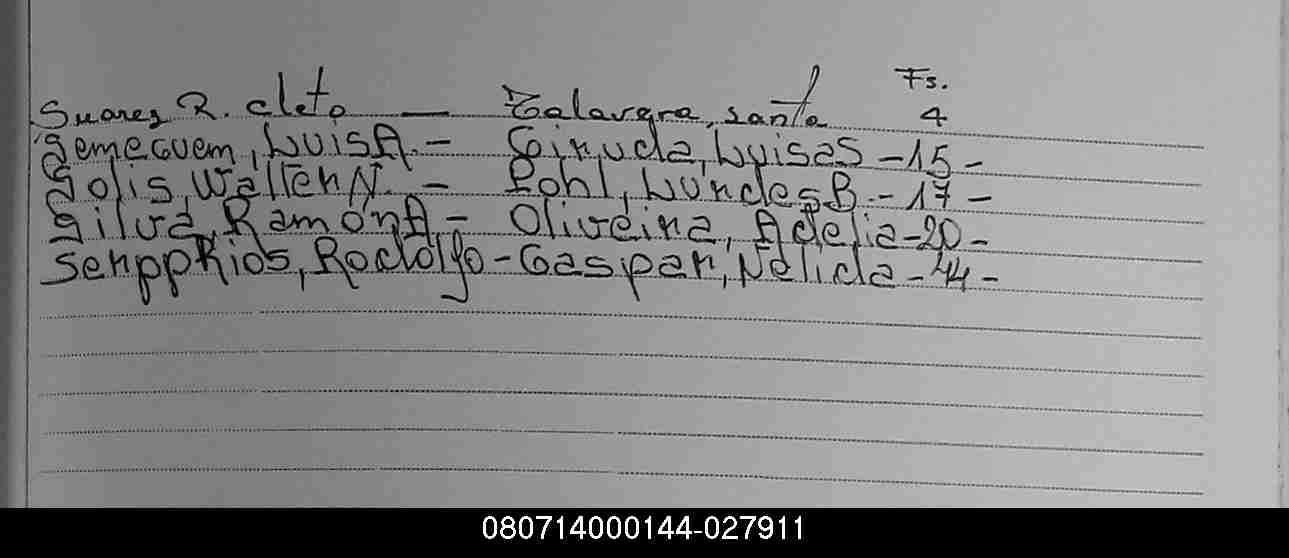 Fs.
Suarez R. cleto — Talavera, santa 4
Semeguem, LuisA. - Cinuda, Luisa S - 15 -
Solis Walter N. - Pohl, Lundes B. - 17 -
Silva, Ramon A. - Oliveira, Adelia - 20 -
Senpp Rios, Rodolfo - Gaspar, Nélida - 44 -
080714000144-027911